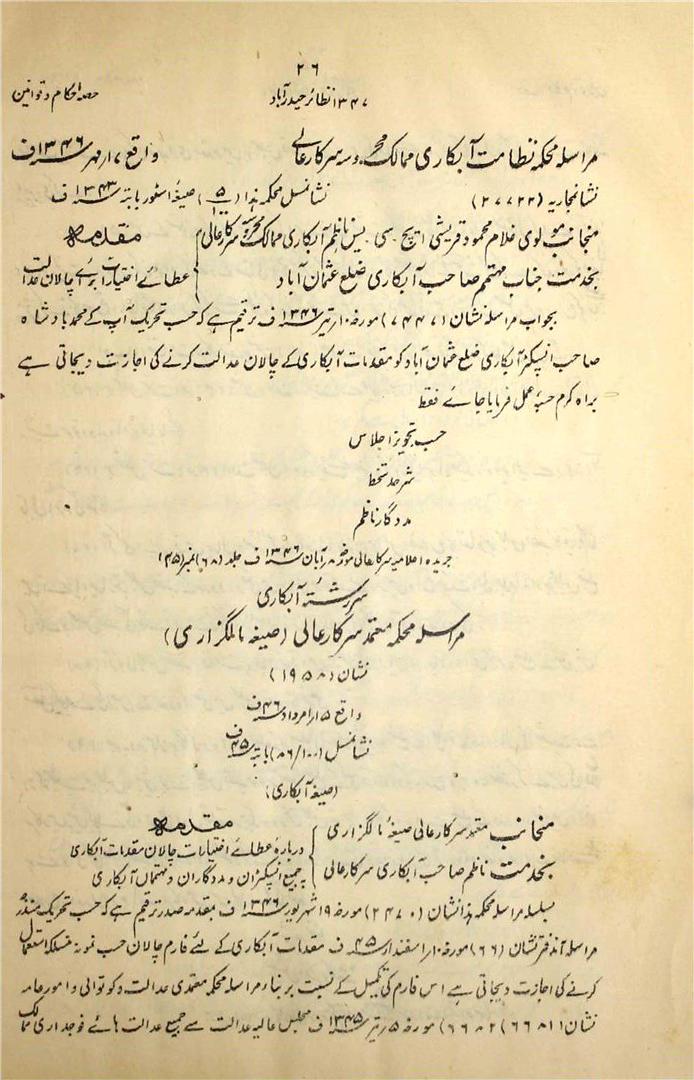 ۲۶
۱۳۴۷ نظائر حیدرآباد
حصہ احکام و قوانین
مراسلہ محکمہ نظامت آبکاری ممالک محروسہ سرکار عالی واقع ۱۷ مہر ۱۳۴۶ ف
نشان مجاریہ (۲۷۷۲۲) نشان مسل محکمہ ہذا (۵) صیغۂ اسٹور بابتہ ۱۳۴۳ ف
منجانب مولوی غلام محمود قریشی ایچ۔ سی۔ یس ناظم آبکاری ممالک محروسہ سرکار عالی مقدمہ
بخدمت جناب مہتمم صاحب آبکاری ضلع عثمان آباد عطائے اختیارات برائے چالان عدالت
بجواب مراسلہ نشان (۷۴۴۷) مورخہ ۱۰ تیر ۱۳۴۶ ف ترقیم ہے کہ حسب تحریک آپ کے محمد بادشاہ
صاحب انسپکٹر آبکاری ضلع عثمان آباد کو مقدمات آبکاری کے چالان عدالت کرنے کی اجازت دیجاتی ہے
براہ کرم حسبہ عمل فرمایا جائے فقط
حسب تجویز اجلاس
شرحد ستخط
مددگار ناظم
جریدہ اعلامیہ سرکار عالی مورخہ ۸ آبان ۱۳۴۶ ف جلد (۶۸) نمبر (۴۵)
سررشتہ آبکاری
مراسلہ محکمہ معتمد سرکار عالی (صیغہ مالگزاری)
نشان (۱۹۵۸)
واقع ۱۵ امرداد ۴۶ ف
نشان مسل (۸۶/۱۰۰) بابتہ ۴۵ ف
(صیغہ آبکاری)
منجانب معتمد سرکار عالی صیغۂ مالگزاری مقدمہ
بخدمت ناظم صاحب آبکاری سرکار عالی دربارۂ عطائے اختیارات چالان مقدمات آبکاری
بہ جمیع انسپکٹران و مددگاران و مہتمان آبکاری
بسلسلہ مراسلہ محکمہ ہذا نشان (۲۴۷۰) مورخہ ۱۹ شہریور ۱۳۴۶ ف بمقدمہ صدر ترقیم ہے کہ حسب تحریک مندرجہ
مراسلہ آندفتر نشان (۶۶) مورخہ ۱۰ اسفندار ۴۵ ف مقدمات آبکاری کے لئے فارم چالان حسب نمونہ منسلکہ استعمال
کرنے کی اجازت دیجاتی ہے اس فارم کی تکمیل کے نسبت بربناء مراسلہ محکمہ معتمدی عدالت و کوتوالی و امور عامہ
نشان (۶۶۸۱ ۶۶۸۲) مورخہ ۵ تیر ۱۳۴۵ ف مجلس عالیہ عدالت سے جمیع عدالت ہائے فوجداری ممالک